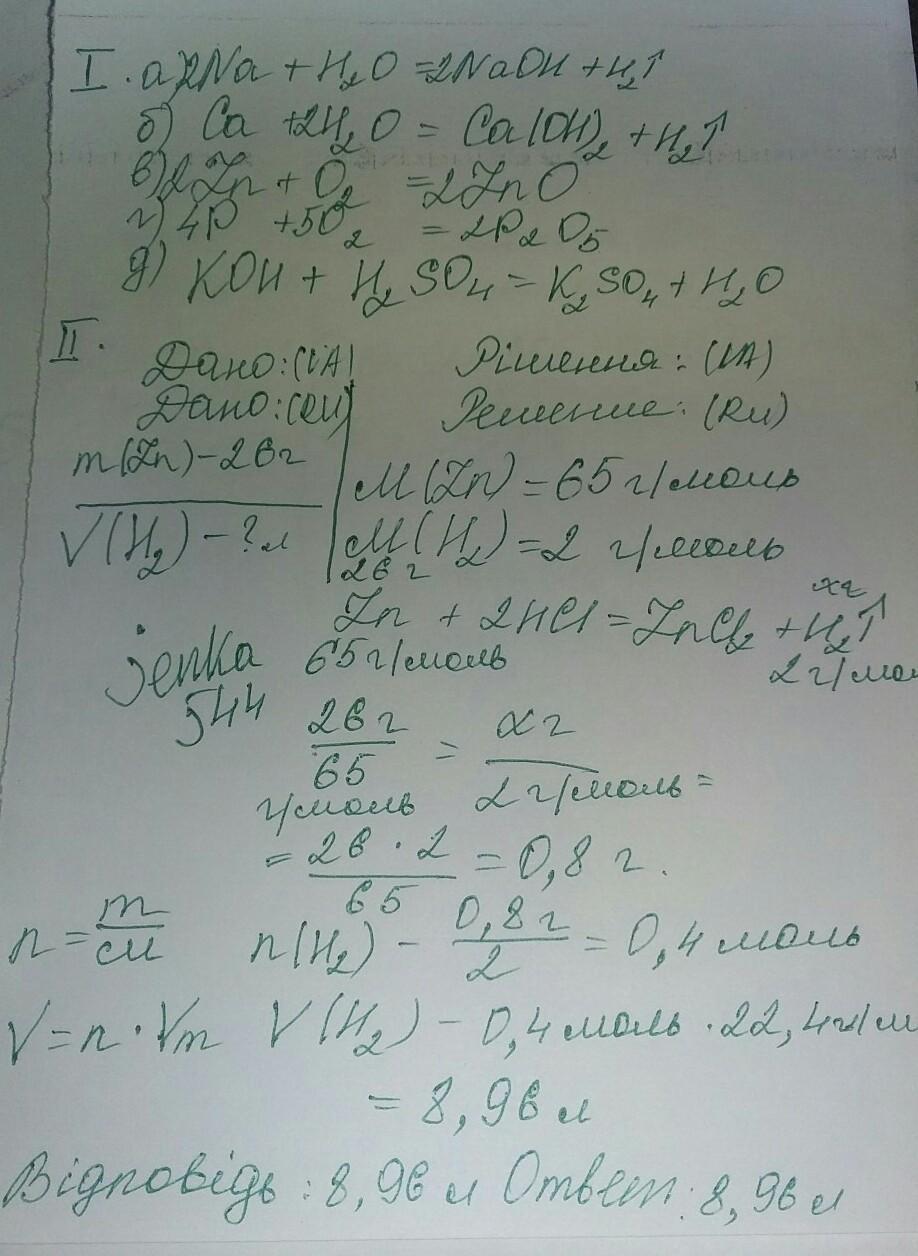 I. а) 2Na + H₂O = 2NaOH + H₂↑
б) Ca + 2H₂O = Ca(OH)₂ + H₂↑
в) 2Zn + O₂ = 2ZnO
г) 4P + 5O₂ = 2P₂O₅
д) KOH + H₂SO₄ = K₂SO₄ + H₂O
II.
Дано: (UA) Рішення: (UA)
Дано: (RU) Решение: (Ru)
m(Zn) – 26г M(Zn) = 65 г/моль
V(H₂) – ? л M(H₂) = 2 г/моль
26 г xг
Zn + 2HCl = ZnCl₂ + H₂↑
65 г/моль 2 г/мол
jenka
544
26 г / 65 г/моль = x г / 2 г/моль =
= 26 · 2 / 65 = 0,8 г.
n = m/M n(H₂) – 0,8 г / 2 = 0,4 моль
V = n · Vm V(H₂) – 0,4 моль · 22,4 г/м
= 8,96 л
Відповідь: 8,96 л Ответ: 8,96 л